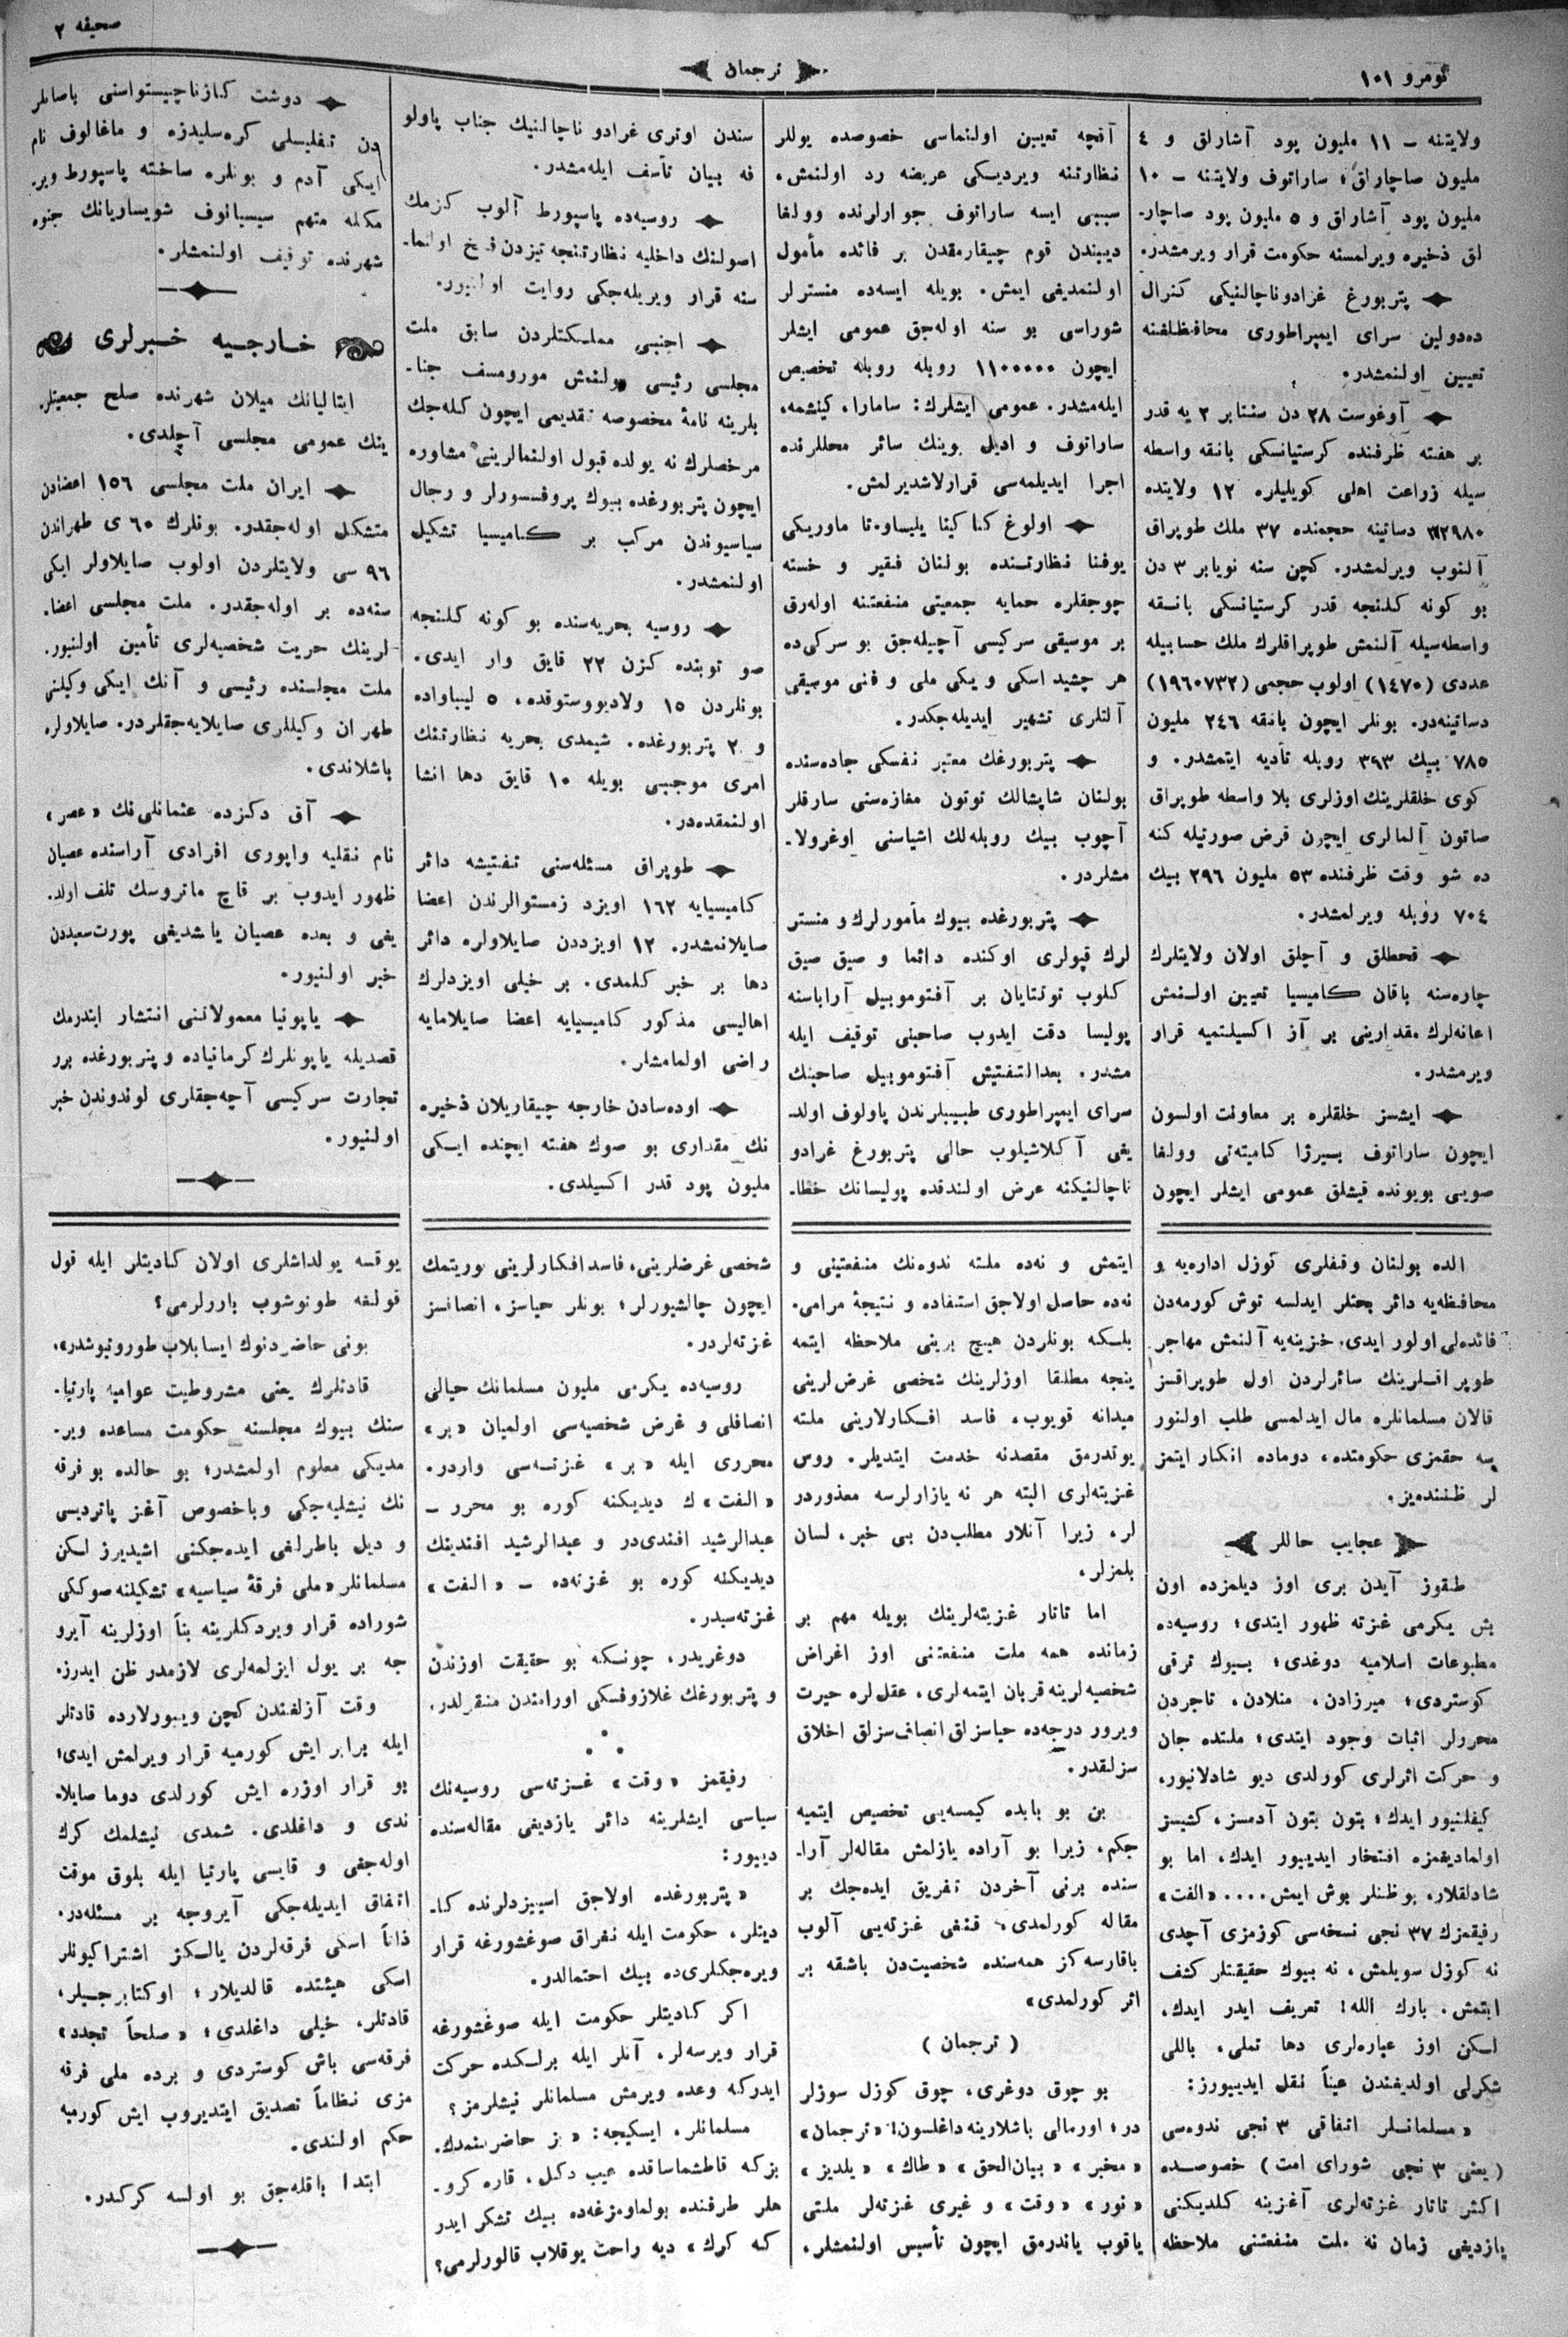 نومرو ١٠١
ترجمان
صحیفه ٢
ولایتنه – ١١ ملیون پود آشارلق و ٤
ملیون صاچارلق؛ ساراتوف ولایتنه – ١٠
ملیون پود آشارلق و ٥ ملیون پود صاچار-
لق ذخیره ویرلمسنه حکومت قرار ویرمشدر.
پتربورغ غرادوناچالنیکی کنرال
ده‌دولین سرای ایمپراطوری محافظلغنه
تعیین اولنمشدر.
آوغوست ٢٨ دن سنتابر ٢ یه قدر
بر هفته ظرفنده کرستیانسکی بانقه واسطه
سیله زراعت اهلی کویلیلره ١٢ ولایتده
دساتینه حجمنده ٣٧ ملك طوپراق
آلنوب ویرلمشدر. کچن سنه نویابر ٣ دن
بو کونه کلنجه قدر کرستیانسکی بانقه
واسطه‌سیله آلنمش طوپراقلرك ملك حسابیله
عددی (١٤٧٠) اولوب حجمی (١٩٦٠٧٣٢)
دساتینه‌در. بونلر ایچون بانقه ٢٤٦ ملیون
٧٨٥ بیك ٣٩٣ روبله تأدیه ایتمشدر. و
کوی خلقلرینك اوزلری بلا واسطه طوپراق
صاتون آلمالری ایچون قرض صورتیله کنه
ده شو وقت ظرفنده ٥٣ ملیون ٢٩٦ بیك
٧٠٤ روبله ویرلمشدر.
قحطلق و آچلق اولان ولایتلرك
چاره‌سنه باقان کامیسیا تعیین اولنمش
اعانه‌لرك مقدارینی بر آز اکسیلتمیه قرار
ویرمشدر.
ایشسز خلقلره بر معاونت اولسون
ایچون ساراتوف بیرژا کامیته‌تی وولغا
صویی بویونده قیشلق عمومی ایشلر ایچون
آقچه تعیین اولنماسی خصوصده یوللر
نظارتنه ویردیکی عریضه رد اولنمش،
سببی ایسه ساراتوف جوارلرنده وولغا
دیبندن قوم چیقارمقدن بر فائده مأمول
اولنمدیغی ایمش. بویله ایسه‌ده منسترلر
شوراسی بو سنه اوله‌جق عمومی ایشلر
ایچون ١١٠٠٠٠٠ روبله روبله تخصیص
ایله‌مشدر. عمومی ایشلرك: سامارا، کینشمه،
ساراتوف و ادیل بوینك سائر محللرنده
اجرا ایدیلمه‌سی قرارلاشدیرلمش.
اولوغ کناکینا یلیساوتا ماوریکی
یوفنا نظارتنده بولنان فقیر و خسته
چوجقلره حمایه جمعیتی منفعتنه اوله‌رق
بر موسیقی سرکیسی آچیله‌جق بو سرکی‌ده
هر چشید اسکی و یکی ملی و فنی موسیقی
آلتلری تشهیر ایدیله‌جکدر.
پتربورغك معتبر نفسکی جاده‌سنده
بولنان شاپشالك توتون مغازه‌سنی سارقلر
آچوب بیك روبله‌لك اشیاسنی اوغرولا-
مشلردر.
پتربورغده بیوك مأمورلرك و منستر
لرك قپولری اوکنده دائما و صیق صیق
کلوب توقتایان بر آفتوموبیل آراباسنه
پولیسا دقت ایدوب صاحبنی توقیف ایله
مشدر. بعدالتفتیش آفتوموبیل صاحبنك
سرای ایمپراطوری طبیبلرندن پاولوف اولد-
یغی آکلاشیلوب حالی پتربورغ غرادو
ناچالنیکنه عرض اولندقده پولیسانك خطا-
سندن اوتری غرادو ناچالنیك جناب پاولو
فه بیان تأسف ایله‌مشدر.
روسیه‌ده پاسپورط آلوب کزمك
اصولنك داخلیه نظارتنجه تیزدن فسخ اولنما-
سنه قرار ویریله‌جکی روایت اولنیور.
اجنبی مملکتلردن سابق ملت
مجلسی رئیسی بولنمش مورومسف جنا-
بلرینه نامهٔ مخصوصه تقدیمی ایچون کله‌جك
مرخصلرك نه یولده قبول اولنمالرینی مشاوره
ایچون پتربورغده بیوك پروفسسورلر و رجال
سیاسیوندن مرکب بر کامیسیا تشکیل
اولنمشدر.
روسیه بحریه‌سنده بو کونه کلنجه
صو توبنده کزن ٢٢ قایق وار ایدی.
بونلردن ١٥ ولادیووستوقده، ٥ لیباواده
و ٢ پتربورغده. شیمدی بحریه نظارتنك
امری موجبی بویله ١٠ قایق دها انشا
اولنمقده‌در.
طوپراق مسئله‌سنی تفتیشه دائر
کامیسیایه ١٦٢ اویزد زمستوالرندن اعضا
صایلانمشدر. ١٢ اویزددن صایلاولره دائر
دها بر خبر کلمدی. بر خیلی اویزدلرك
اهالیسی مذکور کامیسیایه اعضا صایلامایه
راضی اولمامشلر.
اوده‌سادن خارجه چیقاریلان ذخیره
نك مقداری بو صوك هفته ایچنده ایکی
ملیون پود قدر اکسیلدی.
دوشت کازناچیستواسنی باصانلر
دن تفلیسلی کره‌سلیدزه و ماغالوف نام
ایکی آدم و بونلره ساخته پاسپورط ویر-
مکله متهم سیسیانوف شویساریانك جنوه
شهرنده توقیف اولنمشلر.
خارجیه خبرلری
ایتالیانك میلان شهرنده صلح جمعیتلر-
ینك عمومی مجلسی آچلدی.
ایران ملت مجلسی ١٥٦ اعضادن
متشکل اوله‌جقدر. بونلرك ٦٠ ی طهراندن
٩٦ سی ولایتلردن اولوب صایلاولر ایکی
سنه‌ده بر اوله‌جقدر. ملت مجلسی اعضا-
لرینك حریت شخصیه‌لری تأمین اولنیور.
ملت مجلسنده رئیسی و آنك ایکی وکیلنی
طهران وکیللری صایلایه‌جقلردر. صایلاولر
باشلاندی.
آق دکزده عثمانلی‌نك «عصر»
نام نقلیه واپوری افرادی آراسنده عصیان
ظهور ایدوب بر قاچ ماتروسك تلف اولد-
یغی و بعده عصیان یاتشدیغی پورت‌سعیددن
خبر اولنیور.
یاپونیا معمولاتنی انتشار ایتدرمك
قصدیله یاپونلرك کرمانیاده و پتربورغده برر
تجارت سرکیسی آچه‌جقلری لوندوندن خبر
اولنیور.
الده بولنان وقفلری توزل اداره‌یه و
محافظه‌یه دائر بحثلر ایدلسه توش کورمه‌دن
فائده‌لی اولور ایدی. خزینه‌یه آلنمش مهاجر
طوپراقلرینك سائرلردن اول طوپراقسز
قالان مسلمانلره مال ایدلمسی طلب اولنور
سه حقمزی حکومتده، دوماده انکار ایتمز
لر ظننده‌یز.
عجایب حاللر
طقوز آیدن بری اوز دیلمزده اون
بش یکرمی غزته ظهور ایتدی؛ روسیه‌ده
مطبوعات اسلامیه دوغدی؛ بیوك ترقی
کوستردی؛ میرزادن، منلادن، تاجردن
محررلر اثبات وجود ایتدی؛ ملتده جان
و حرکت اثرلری کورلدی دیو شادلانیور،
کیفلنیور ایدك؛ بتون بتون آدمسز، کشیسز
اولمادیغمزه افتخار ایدییور ایدك، اما بو
شادلقلار، بو ظنلر بوش ایمش.... «الفت»
رفیقمزك ٣٧ نجی نسخه‌سی کوزمزی آچدی
نه کوزل سویلمش، نه بیوك حقیقتلر کشف
ایتمش. بارك الله! تعریف ایدر ایدك،
لکن اوز عباره‌لری دها تملی، باللی
شکرلی اولدیغندن عیناً نقل ایدییورز:
«مسلمانلر اتفاقی ٣ نجی ندوه‌سی
(یعنی ٣ نجی شورای امت) خصوصده
اکثر تاتار غزته‌لری آغزینه کلدیکنی
یازدیغی زمان نه ملت منفعتنی ملاحظه
ایتمش و نه‌ده ملته ندوه‌نك منفعتینی و
نه‌ده حاصل اولاجق استفاده و نتیجهٔ مرامی.
بلکه بونلردن هیچ برینی ملاحظه ایتمه
ینجه مطلقا اوزلرینك شخصی غرض‌لرینی
میدانه قویوب، فاسد افکارلارینی ملته
یوتدرمق مقصدنه خدمت ایتدیلر. روس
غزیته‌لری البته هر نه یازارلرسه معذوردر
لر، زیرا آنلار مطلب‌دن بی خبر، لسان
بلمزلر،
اما تاتار غزیته‌لرینك بویله مهم بر
زمانده همه ملت منفعتنی اوز اغراض
شخصیه‌لرینه قربان ایتمه‌لری، عقل لره حیرت
ویرور درجه‌ده حیاسزلق انصاف‌سزلق اخلاق
سزلقدر.
بن بو بابده کیمسه‌یی تخصیص ایتمیه
جکم، زیرا بو آراده یازلمش مقاله‌لر آرا-
سنده برنی آخردن تفریق ایده‌جك بر
مقاله کورلمدی، قنغی غزته‌یی آلوب
باقارسه‌کز همه‌سنده شخصیت‌دن باشقه بر
اثر کورلمدی»
(ترجمان)
بو چوق دوغری، چوق کوزل سوزلر
در؛ اورمالی باشلارینه داغلسون! «ترجمان»
«مخبر» «بیان‌الحق» «طاك» «یلدیز»
«نور» «وقت» و غیری غزته‌لر ملتی
یاقوب یاندرمق ایچون تأسیس اولنمشلر،
شخصی غرضلرینی، فاسد افکارلرینی یوریتمك
ایچون چالشیورلر؛ بونلر حیاسز، انصافسز
غزته‌لردر.
روسیه‌ده یکرمی ملیون مسلمانك حیالی
انصافلی و غرض شخصیه‌سی اولمیان «بر»
محرری ایله «بر» غزته‌سی واردر.
«الفت»ك دیدیکنه کوره بو محرر –
عبدالرشید افندی‌در و عبدالرشید افندینك
دیدیکنه کوره بو غزته‌ده – «الفت»
غزته‌سیدر.
دوغریدر، چونکه بو حقیقت اوزندن
و پتربورغك غلازوفسکی اورامندن منقولدر.
رفیقمز «وقت» غزته‌سی روسیه‌نك
سیاسی ایشلرینه دائر یازدیغی مقاله‌سنده
دییور:
«پتربورغده اولاجق اسییزدلرنده کا-
دیتلر، حکومت ایله نفراق صوغشورغه قرار
ویره‌جکلری‌ده بیك احتمالدر.
اکر کادیتلر حکومت ایله صوغشورغه
قرار ویرسه‌لر، آنلر ایله برلکده حرکت
ایدرکه وعده ویرمش مسلمانلر نیشلرمز؟
مسلمانلر، ایسکیجه: «بز حاضرلنمدك.
بزکه قاطشماساقده عیب دکل، قاره کرو-
هلر طرفنده بولماومزغه‌ده بیك تشکر ایدر
که کرك» دیه راحت یوقلاب قالورلرمی؟
یوقسه یولداشلری اولان کادیتلر ایله قول
قولغه طوتوشوب بارلرمی؟
بونی حاضردنوك ایسابلاب طوروتیوشدر».
قادتلرك یعنی مشروطیت عوامیه پارتیا-
سنك بیوك مجلسنه حکومت مساعده ویر-
مدیکی معلوم اولمشدر؛ بو حالده بو فرقه
نك نیشلیه‌جکی وباخصوص آغز پاتردیسی
و دیل باطرلغی ایده‌جکنی اشیدیرز لکن
مسلمانلر «ملی فرقهٔ سیاسیه» تشکیلنه صوککی
شوراده قرار ویردکلرینه بناً اوزلرینه آیرو
جه بر یول ایزلمه‌لری لازمدر ظن ایدرز.
وقت آزلغندن کچن ویبورلارده قادتلر
ایله برابر ایش کورمیه قرار ویرلمش ایدی؛
بو قرار اوزره ایش کورلدی دوما صایلا-
ندی و داغلدی. شمدی نیشلمك کرك
اوله‌جغی و قایسی پارتیا ایله بلوق موقت
اتفاق ایدیله‌جکی آیروجه بر مسئله‌در.
ذاتاً اسکی فرقه‌لردن یالکز اشتراکیونلر
اسکی هیئتده قالدیلار؛ اوکتابرجیلر،
قادتلر، خیلی داغلدی؛ «صلحاً تجدد»
فرقه‌سی باش کوستردی و برده ملی فرقه
مزی نظاماً تصدیق ایتدیروب ایش کورمیه
حکم اولندی.
ابتدا باقله‌جق بو اولسه کرکدر.